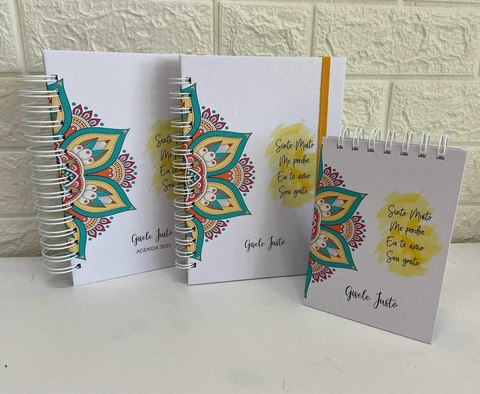 Sinto
Me
Eu te
Sou
Gisele Justo
AGENDA 2023
Sinto Muito
Me perdoe
Eu te amo
Sou grato
Gisele Justo
Sinto Muito
Me perdoe
Eu te amo
Sou grato
Gisele Justo